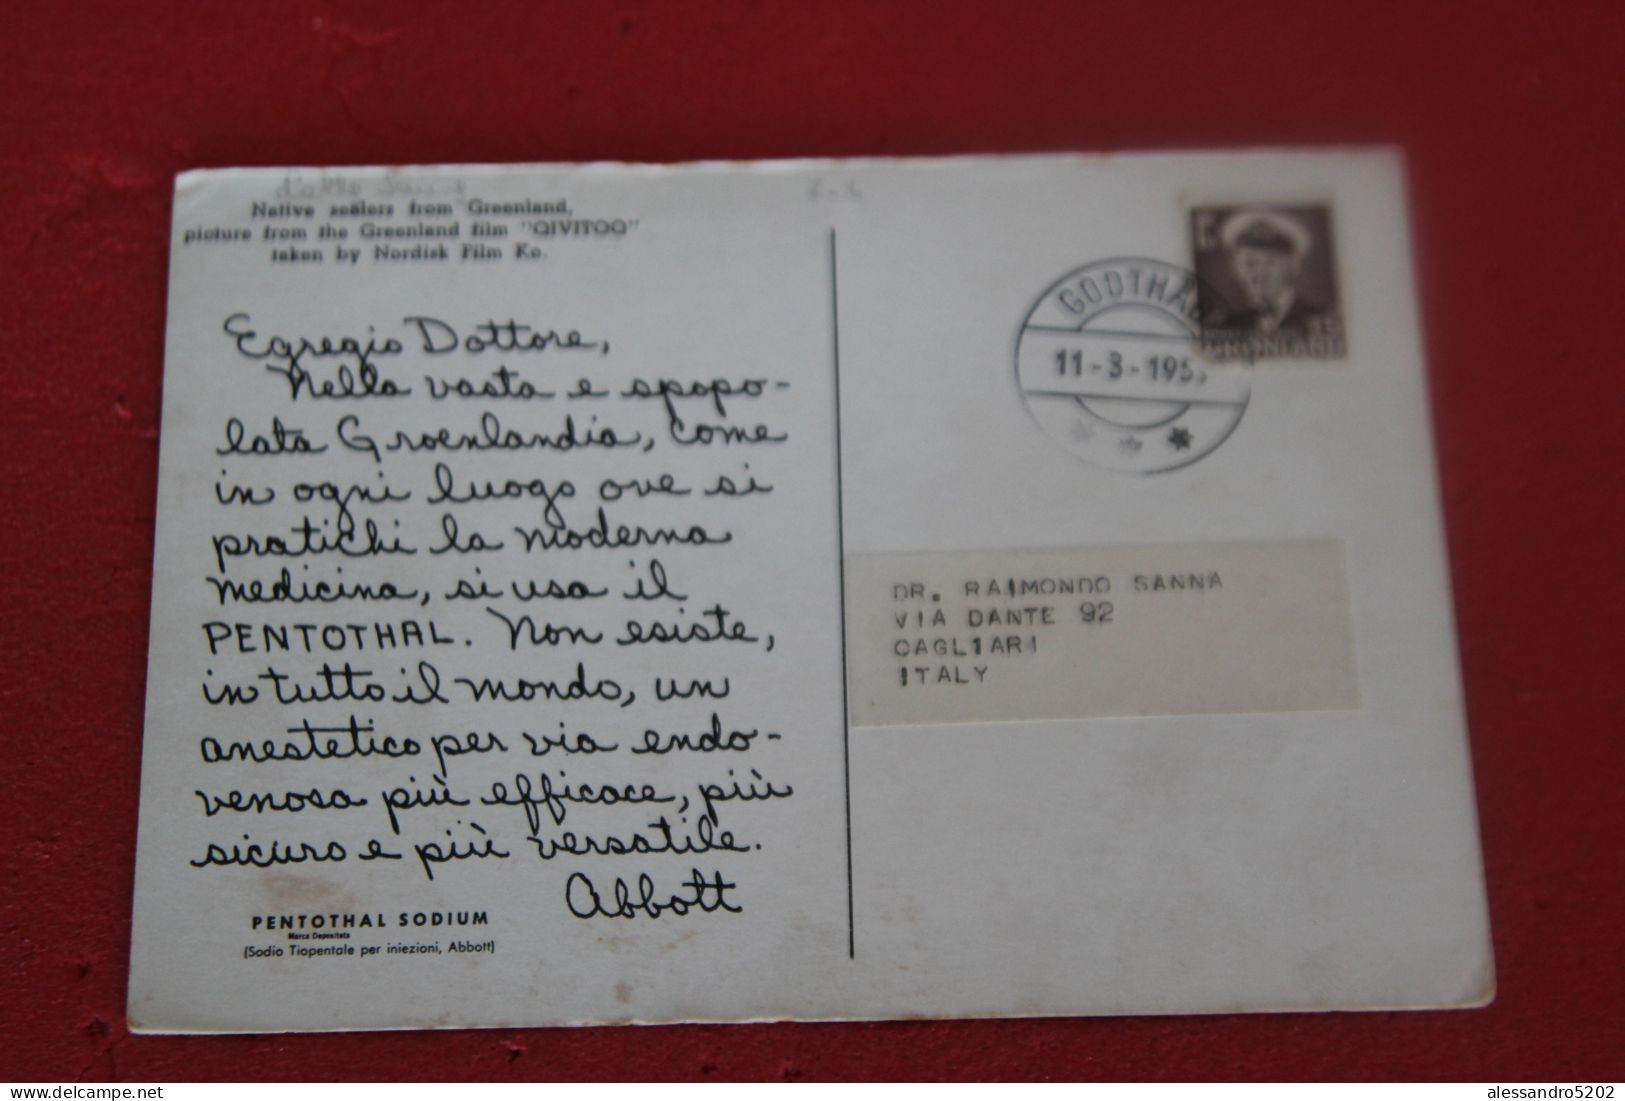 Native sealers from Greenland,
picture from the Greenland film "QIVITOQ"
taken by Nordisk Film Ko.
Egregio Dottore,
Nella vasta e spopo-
lata Groenlandia, come
in ogni luogo ove si
pratichi la moderna
medicina, si usa il
PENTOTHAL. Non esiste,
in tutto il mondo, un
anestetico per via endo-
venosa più efficace, più
sicuro e più versatile.
Abbott
PENTOTHAL SODIUM
Marca Depositata
(Sodio Tiopentale per iniezioni, Abbott)
GODTHÅB
11-3-195
GRØNLAND
DR. RAIMONDO SANNA
VIA DANTE 92
CAGLIARI
ITALY
alessandro5202